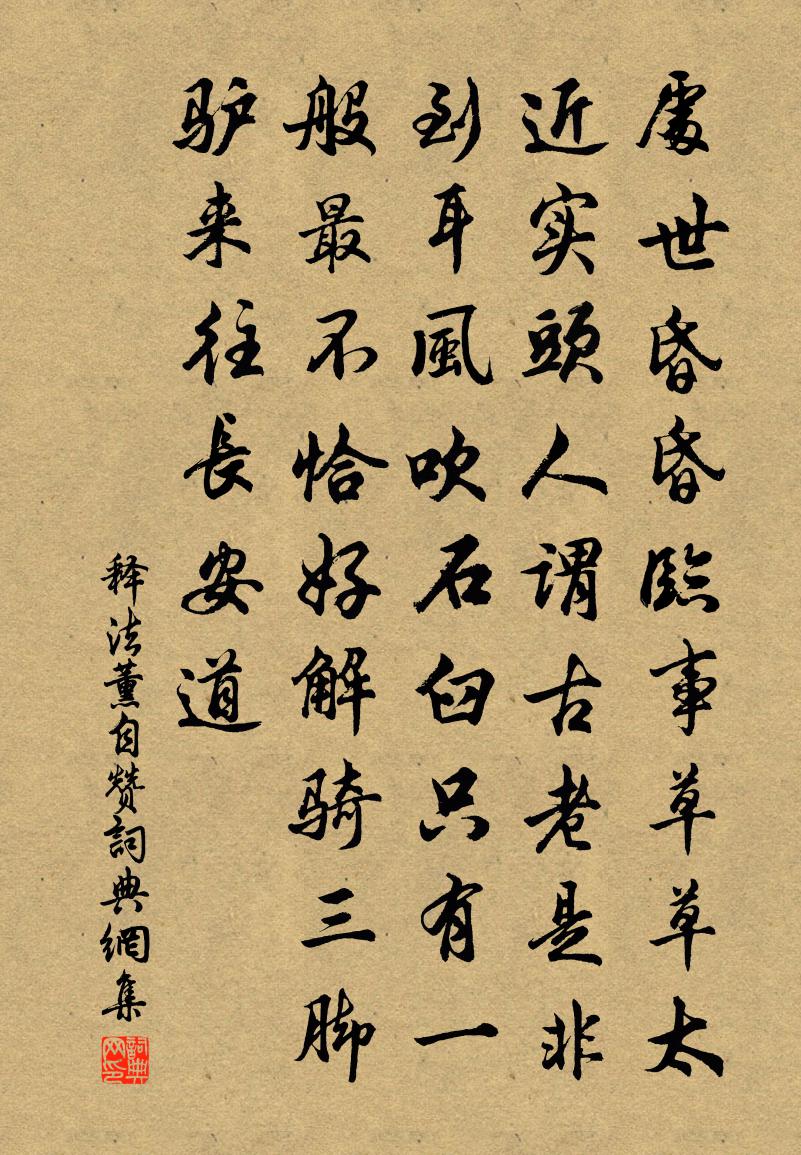 處世昏昏臨事草草太
近实頭人謂古老是非
到耳風吹石臼只有一
般最不恰好解骑三脚
驴来往長安道
释法薰自赞詞典網集
詞典网印